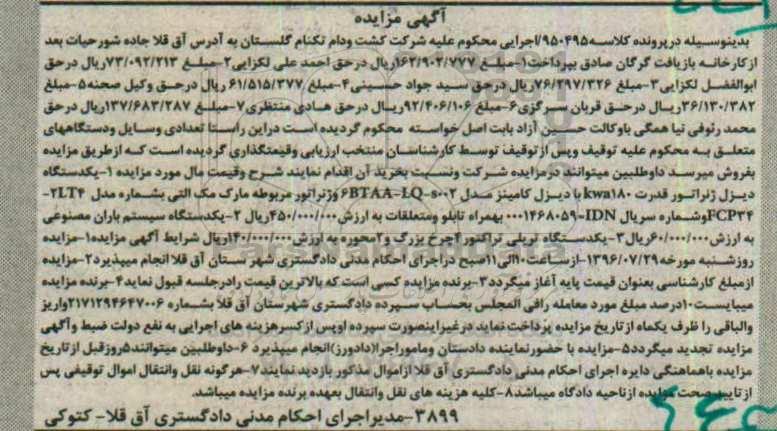 آگهی مزایده
بدینوسیله درپرونده کلاسه۹۵۰۴۹۵/اجرایی محکوم علیه شرکت کشت ودام تکنام گلستان به آدرس آق قلا جاده شورحیات بعد
ازکارخانه بازیافت گرگان صادق بپرداخت۱-مبلغ ۱۶۲/۹۰۲/۷۷۷ریال درحق احمد علی لکزایی۲-مبلغ ۷۳/۰۹۲/۲۱۳ریال درحق
ابوالفضل لکزایی۳-مبلغ ۷۶/۲۹۷/۳۲۶ریال درحق سید جواد حسینی۴-مبلغ ۶۱/۵۱۵/۳۷۷ ریال درحق وکیل صحنه۵-مبلغ
۳۶/۱۳۰/۳۸۲ریال درحق قربان سرگزی۶-مبلغ ۹۲/۴۰۶/۱۰۶ریال درحق هادی منتظری۷-مبلغ ۱۳۷/۶۸۳/۲۸۷ریال درحق
محمد رئوفی نیا همگی باوکالت حسین آزاد بابت اصل خواسته محکوم گردیده است دراین راستا تعدادی وسایل ودستگاههای
متعلق به محکوم علیه توقیف وپس ازتوقیف توسط کارشناسان منتخب ارزیابی وقیمتگذاری گردیده است که ازطریق مزایده
بفروش میرسد داوطلبین میتوانند درمزایده شرکت ونسبت بخرید آن اقدام نمایند شرح وقیمت مال مورد مزایده ۱-یکدستگاه
دیزل ژنراتور قدرت kwa۱۸۰ با دیزل کامینز مدل ۶BTAA-LQ-S۰۰۲ وژنراتور مربوطه مارک مک التی بشماره مدل ۲LT۴-
FCP۳۴وشماره سریال IDN-۰۰۰۱۴۶۸۰۵۹ بهمراه تابلو ومتعلقات به ارزش۴۵۰/۰۰۰/۰۰۰ریال ۲-یکدستگاه سیستم باران مصنوعی
به ارزش۶۰/۰۰۰/۰۰۰ریال۳-یکدستگاه تریلی تراکتور ۴چرخ بزرگ و۲محوره به ارزش۱۴۰/۰۰۰/۰۰۰ریال شرایط آگهی مزایده۱-مزایده
روزشنبه مورخه۱۳۹۶/۰۷/۲۹-ازساعت۱۰الی۱۱صبح دراجرای احکام مدنی دادگستری شهرستان آق قلا انجام میپذیرد۲-مزایده
ازمبلغ کارشناسی بعنوان قیمت پایه آغاز میگردد۳-برنده مزایده کسی است که بالاترین قیمت رادرجلسه قبول نماید۴-برنده مزایده
میبایست۱۰درصد مبلغ مورد معامله رافی المجلس بحساب سپرده دادگستری شهرستان آق قلا بشماره ۲۱۷۱۲۹۴۶۴۷۰۰۶واریز
والباقی را ظرف یکماه ازتاریخ مزایده پرداخت نماید درغیراینصورت سپرده اوپس ازکسرهزینه های اجرایی به نفع دولت ضبط وآگهی
مزایده تجدید میگردد۵-مزایده با حضورنماینده دادستان وماموراجرا(دادورز)انجام میپذیرد ۶-داوطلبین میتوانند۵روزقبل ازتاریخ
مزایده باهماهنگی دایره اجرای احکام مدنی دادگستری آق قلا ازاموال مذکور بازدید نمایند۷-هرگونه نقل وانتقال اموال توقیفی پس
ازتایید صحت مزایده ازناحیه دادگاه میباشد۸-کلیه هزینه های نقل وانتقال بعهده برنده مزایده میباشد.
۳۸۹۹-مدیراجرای احکام مدنی دادگستری آق قلا- کتوکی